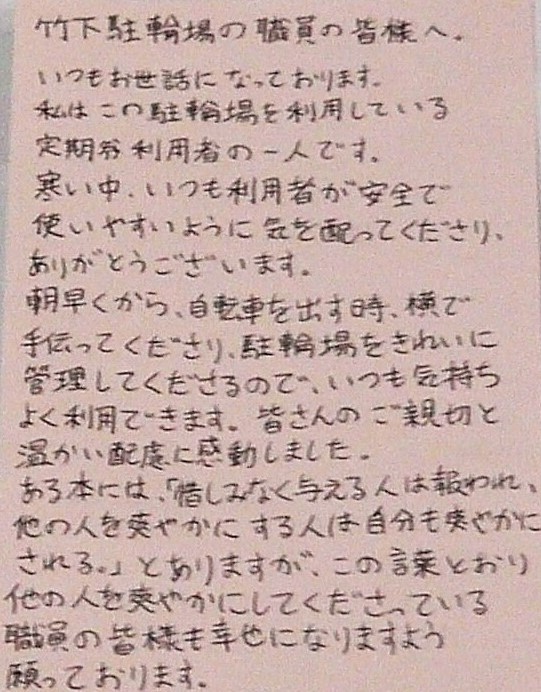 竹下駐輪場の職員の皆様へ。
いつもお世話になっております。
私はこの駐輪場を利用している
定期券利用者の一人です。
寒い中、いつも利用者が安全で
使いやすいように気を配ってくださり、
ありがとうございます。
朝早くから、自転車を出す時、横で
手伝ってくださり、駐輪場をきれいに
管理してくださるので、いつも気持ち
よく利用できます。皆さんのご親切と
温かい配慮に感動しました。
ある本には、「惜しみなく与える人は報われ、
他の人を爽やかにする人は自分も爽やかに
される。」とありますが、この言葉とおり
他の人を爽やかにしてくださっている
職員の皆様も幸せになりますよう
願っております。